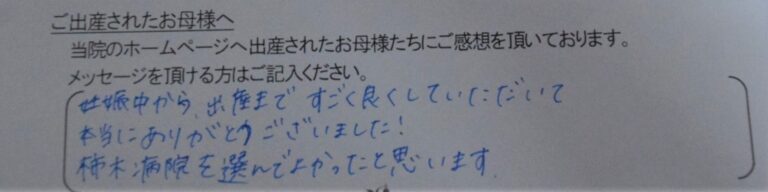 ご出産されたお母様へ
当院のホームページへ出産されたお母様たちにご感想を頂いております。
メッセージを頂ける方はご記入ください。
妊娠中から、出産まで すごく良くしていただいて
本当にありがとうございました!
柿木病院を選んでよかったと思います